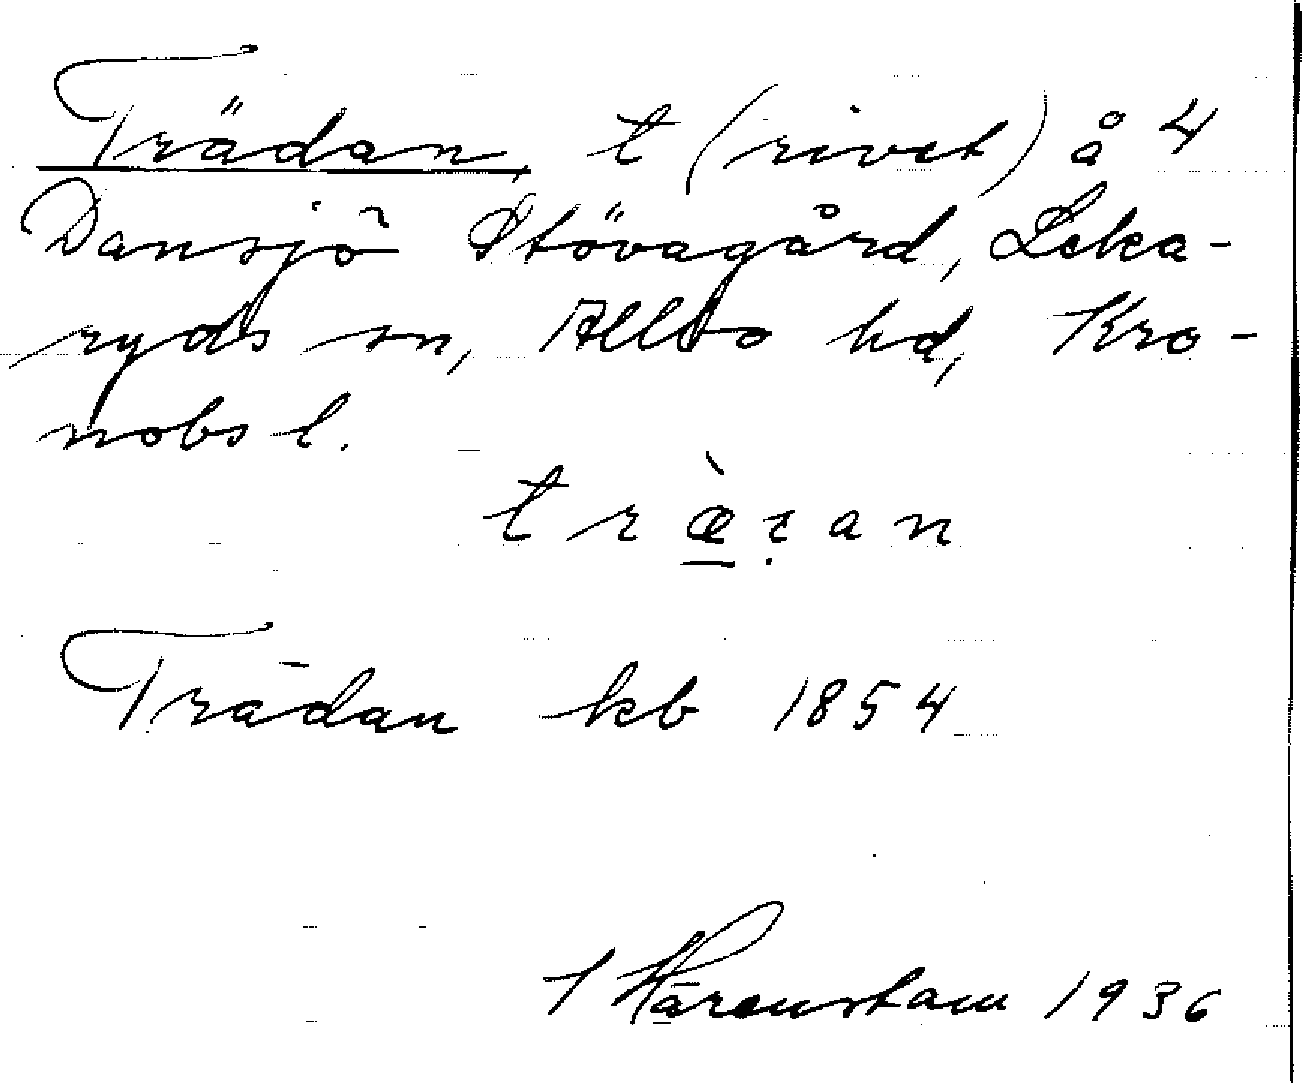 Trädan, t (rivet) å 4
Dansjö Stövagård, Leka-
ryds sn, Allbo hd, Kro-
nobs l.
træ̀ɀan
Trädan kb 1854
1936